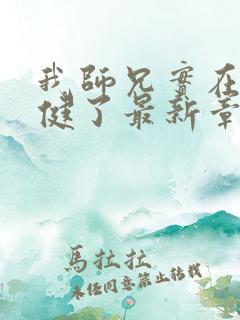 我師兄實在
健了最新章
馬拉拉
未經同意禁止轉載